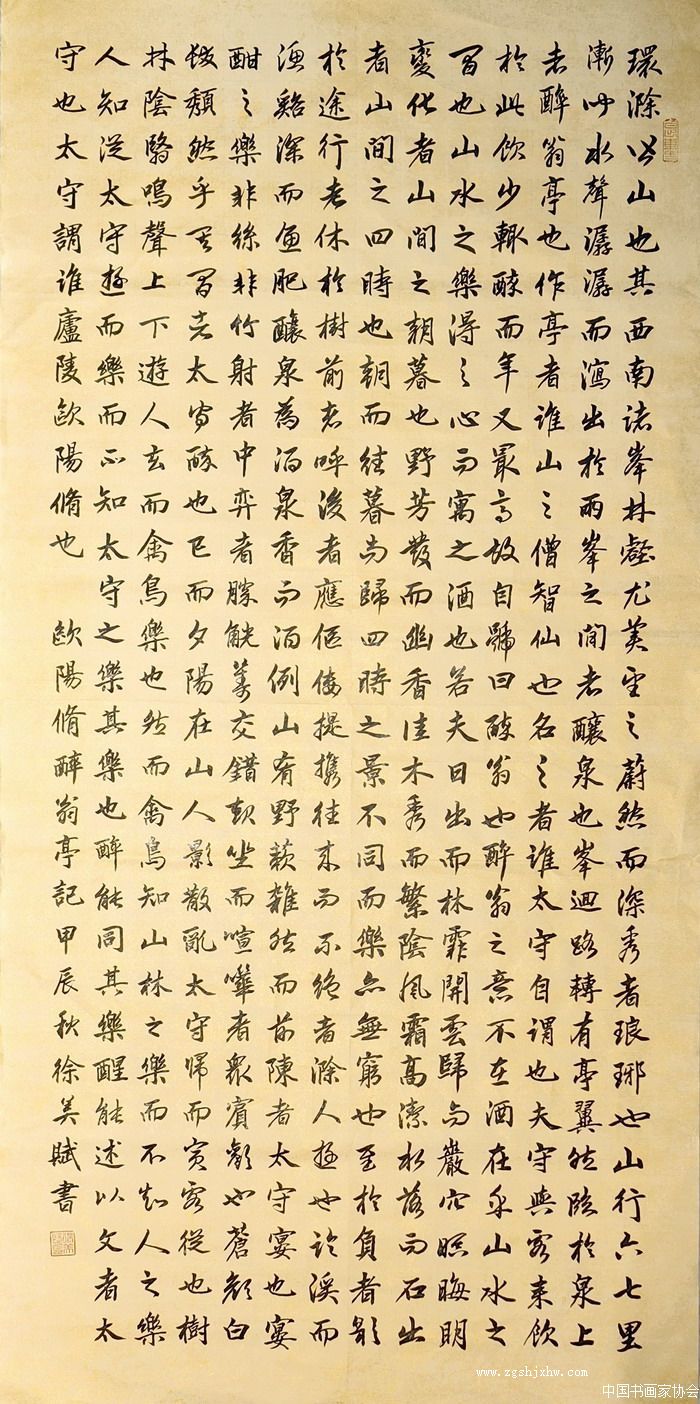 環滁皆山也其西南諸峯林壑尤美望之蔚然而深秀者琅琊也山行六七里
漸聞水聲潺潺而瀉出於兩峯之間者釀泉也峯迴路轉有亭翼然臨於泉上
者醉翁亭也作亭者誰山之僧智仙也名之者誰太守自謂也夫守與客来飲
於此飲少輒醉而年又最高故自號曰醉翁也醉翁之意不在酒在乎山水之
間也山水之樂得之心而寓之酒也若夫日出而林霏開雲歸而巖穴暝晦明
變化者山間之朝暮也野芳發而幽香佳木秀而繁陰風霜高潔水落而石出
者山間之四時也朝而往暮而歸四時之景不同而樂亦無窮也至於負者歌
於途行者休於樹前者呼後者應傴僂提攜往来而不絶者滁人遊也臨溪而
漁谿深而魚肥釀泉為酒泉香而酒例山肴野蔌雜然而前陳者太守宴也宴
酣之樂非絲非竹射者中弈者勝觥籌交錯起坐而喧嘩者衆賓歡也蒼顔白
髮頹然乎其間者太守醉也已而夕陽在山人影散亂太守歸而賓客從也樹
林陰翳鳴聲上下遊人去而禽鳥樂也然而禽鳥知山林之樂而不知人之樂
人知從太守遊而樂而不知太守之樂其樂也醉能同其樂醒能述以文者太
守也太守謂誰廬陵歐陽脩也 歐陽脩醉翁亭記甲辰秋徐美賦書
www.zgshjxhw.com
中国书画家协会